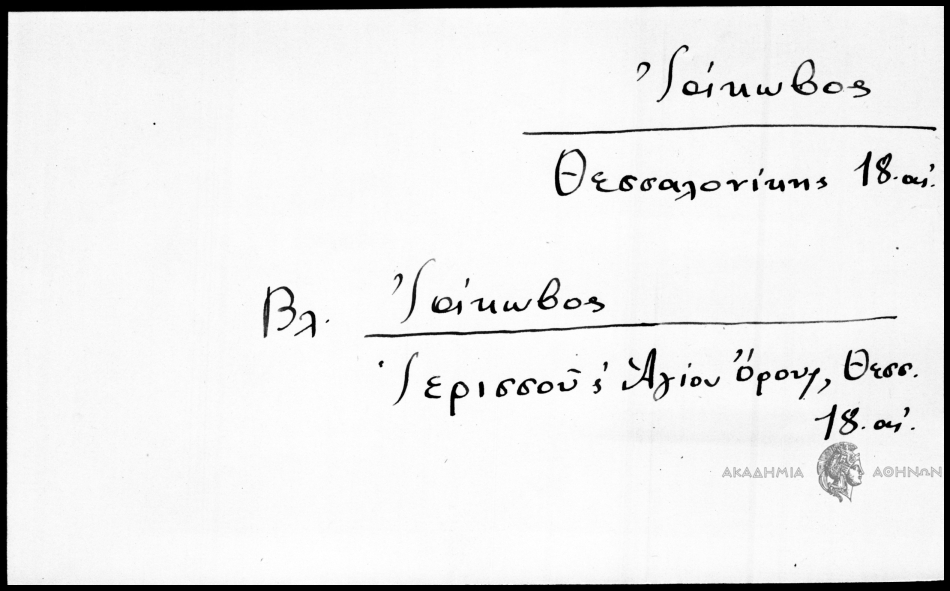 Ἰάκωβος
Θεσσαλονίκης 18. αἰ.
Βλ. Ἰάκωβος
Ἱερισσοῦ ϛ Ἁγίου Ὄρους, Θεσσ.
18. αἰ.
ΑΚΑΔΗΜΙΑ ΑΘΗΝΩΝ